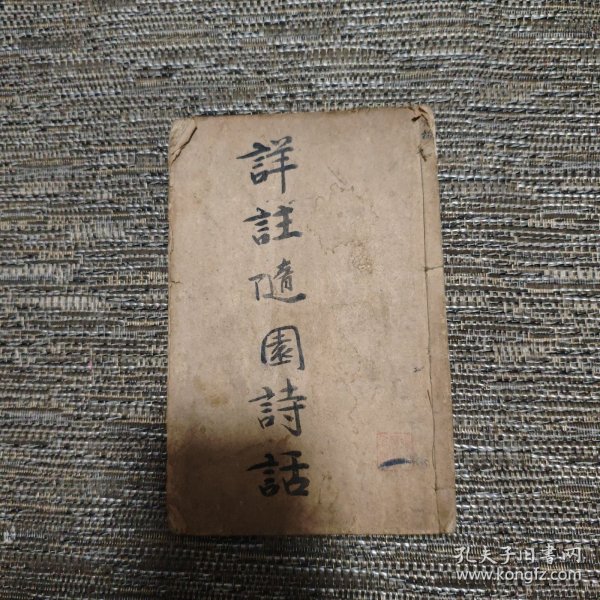 詳註隨園詩話
一
孔夫子旧书网
www.kongfz.com